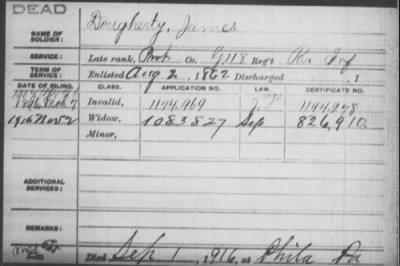 DEAD
NAME OF SOLDIER: Dougherty, James
SERVICE: Late rank, Co. G, 118 Reg't Pa Inf
TERM OF SERVICE: Enlisted Aug 2, 1862 Discharged , 1
DATE OF FILING. CLASS. APPLICATION NO. LAW. CERTIFICATE NO.
Invalid, 1174.969
1916 Nov 2 Widow, 1083827 Sep 826,910.
Minor,
ADDITIONAL SERVICES:
REMARKS:
Died Sep 1, 1916, at Phila Pa